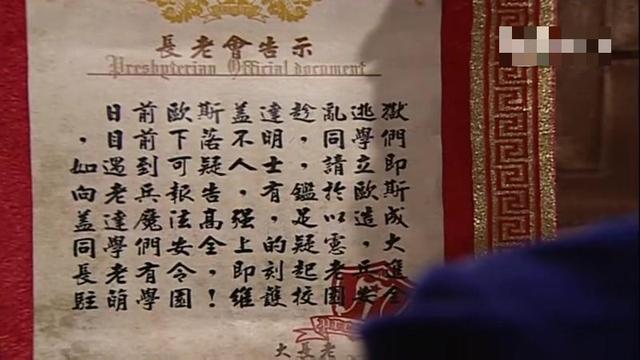 長老會告示
Presbyterian Official document
日前歐斯蓋達趁亂逃獄
，目前下落不明，同學們
如遇到可疑人士，請立即
向老兵報告，有鑑於歐斯
蓋達魔法高強，足以造成
同學們安全上的疑慮，大
長老有令，即刻起老兵進
駐萌學園！維護校園安全
大長老